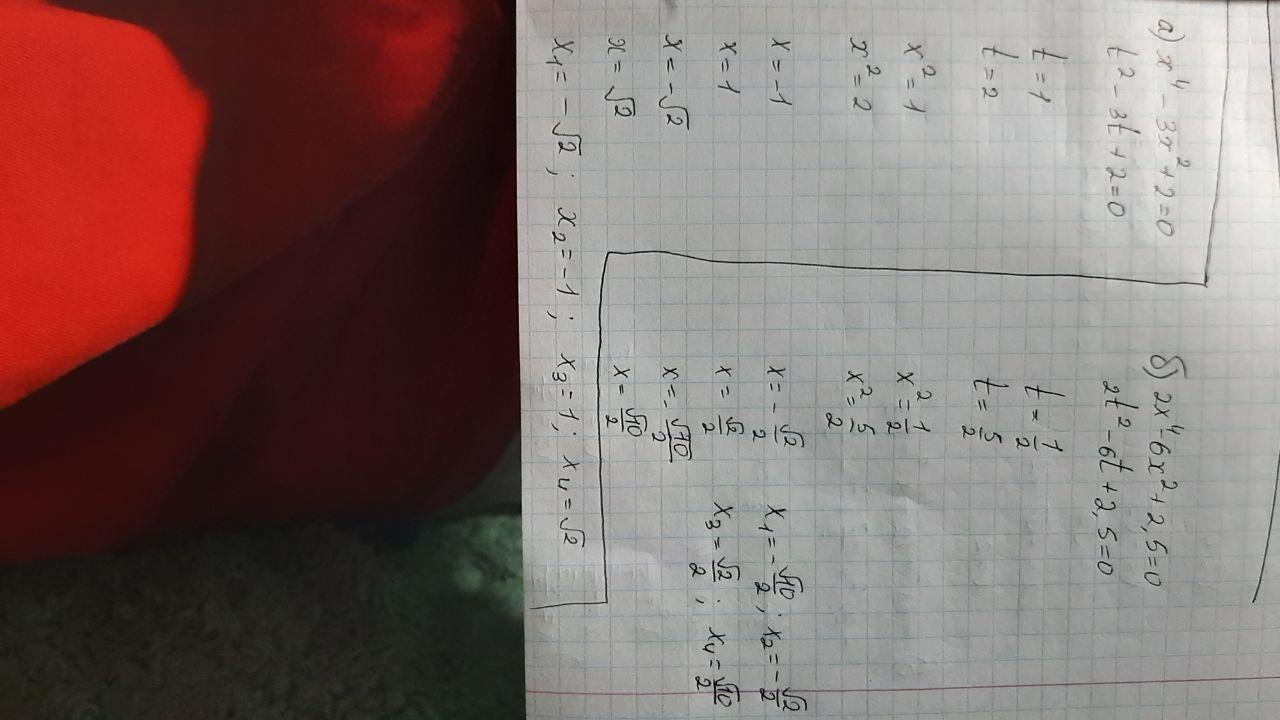 а) x⁴ - 3x² + 2 = 0
t² - 3t + 2 = 0
t = 1
t = 2
x² = 1
x² = 2
x = -1
x = 1
x = -√2
x = √2
x₁ = -√2 ; x₂ = -1 ; x₃ = 1 ; x₄ = √2
б) 2x⁴ 6x² + 2,5 = 0
2t² - 6t + 2,5 = 0
t = 1/2
t = 5/2
x² = 1/2
x² = 5/2
x = -√2/2
x = √2/2
x = -√10/2
x = √10/2
x₁ = -√10/2 ; x₂ = -√2/2
x₃ = √2/2 ; x₄ = √10/2